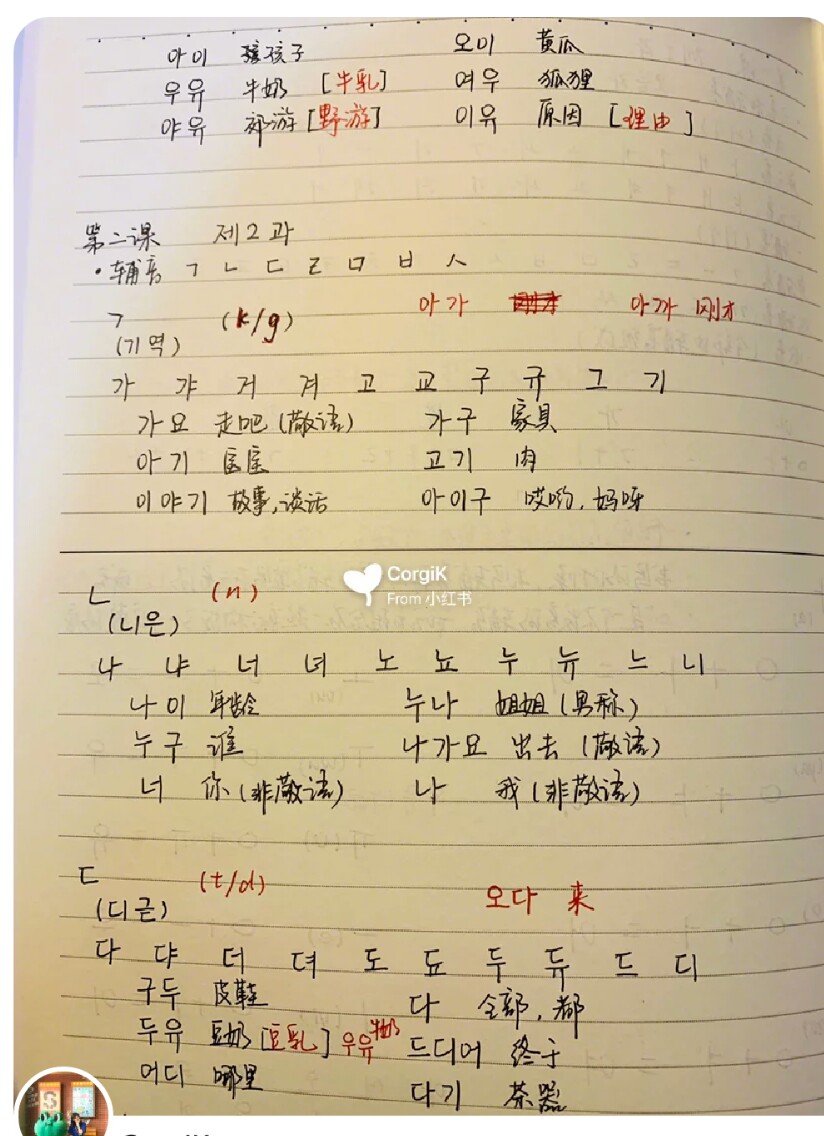 아이 孩孩子 오이 黄瓜
우유 牛奶 [牛乳] 여우 狐狸
야유 郊游 [野游] 이유 原因 [理由]
第二课 제2과
• 辅音 ㄱ ㄴ ㄷ ㄹ ㅁ ㅂ ㅅ
ㄱ (k/g) 아가 아까 刚才
(기역)
가 갸 거 겨 고 교 구 규 그 기
가요 走吧 (敬语) 가구 家具
아기 고기 肉
이야기 故事,谈话 아이구 哎哟,妈呀
CorgiK
From 小红书
ㄴ (n)
(니은)
나 냐 너 녀 노 뇨 누 뉴 느 니
나이 年龄 누나 姐姐 (男称)
누구 谁 나가요 出去 (敬语)
너 你 (非敬语) 나 我 (非敬语)
ㄷ (t/d) 오다 来
(디귿)
다 댜 더 뎌 도 됴 두 듀 드 디
구두 皮鞋 다 全部,都
두유 豆奶 [豆乳] 우유 牛奶 드디어 终于
어디 哪里 다기 茶器